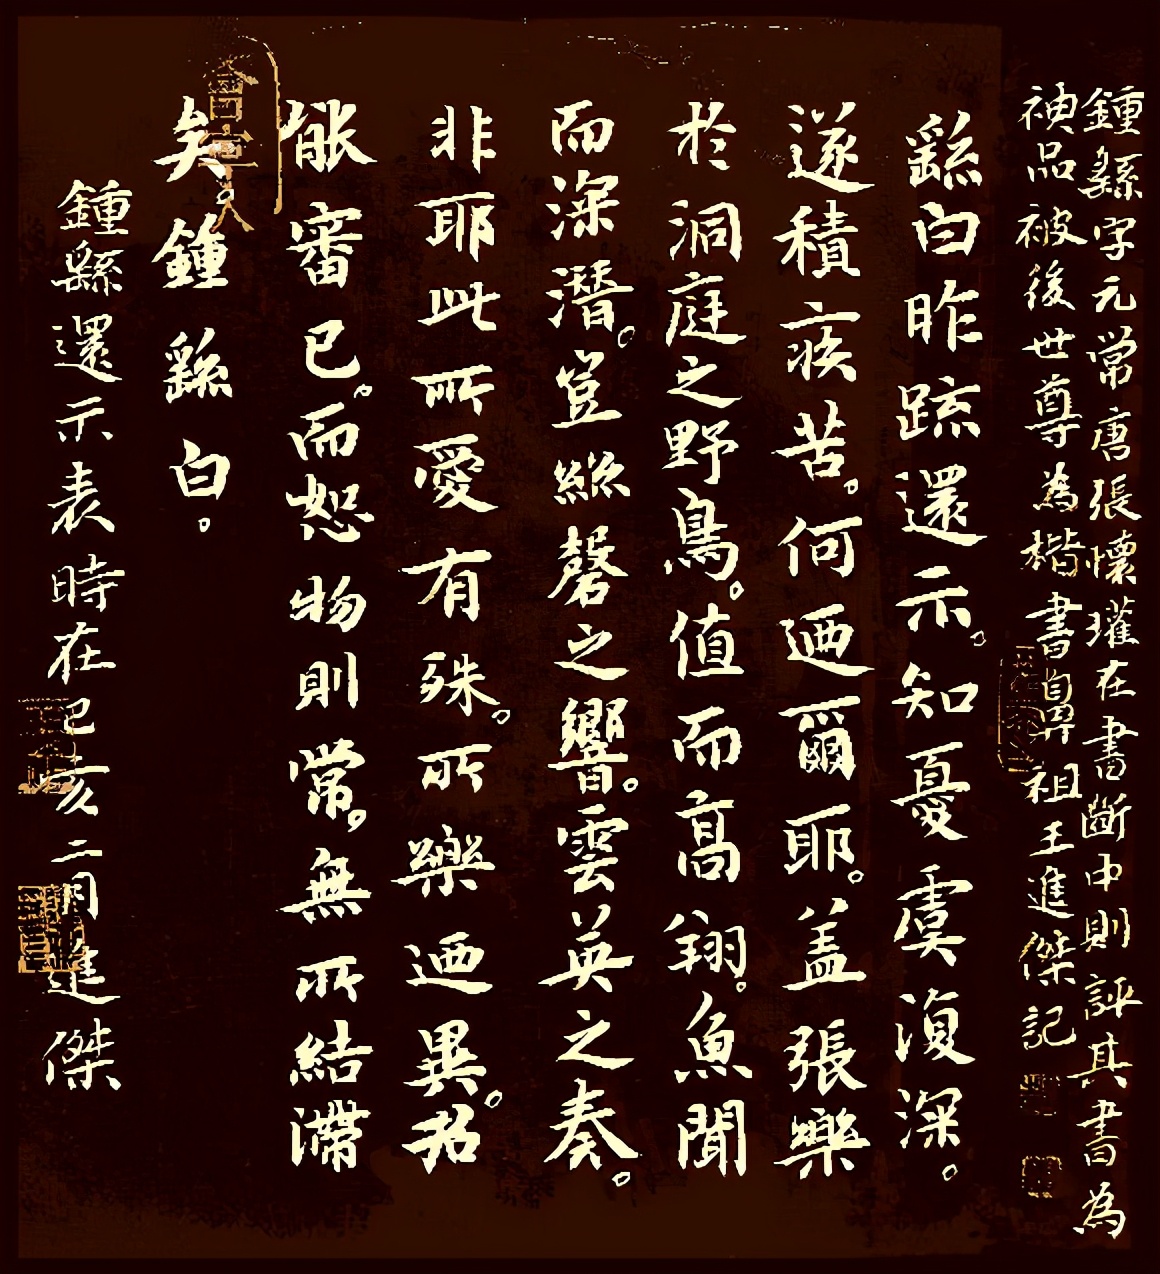 鍾繇字元常唐張懷瓘在書斷中則評其書為
神品被後世尊為楷書鼻祖王進傑記
繇白昨疏還示。知憂虞復深。
遂積疾苦。何迺爾耶。蓋張樂
於洞庭之野鳥。值而高翔。魚聞
而深潛。豈絲磬之響。雲英之奏。
非耶此所愛有殊。所樂迺異。君
能審已。而恕物則常。無所結滯
矣。鍾繇白。
鍾繇還示表時在己亥二月進傑